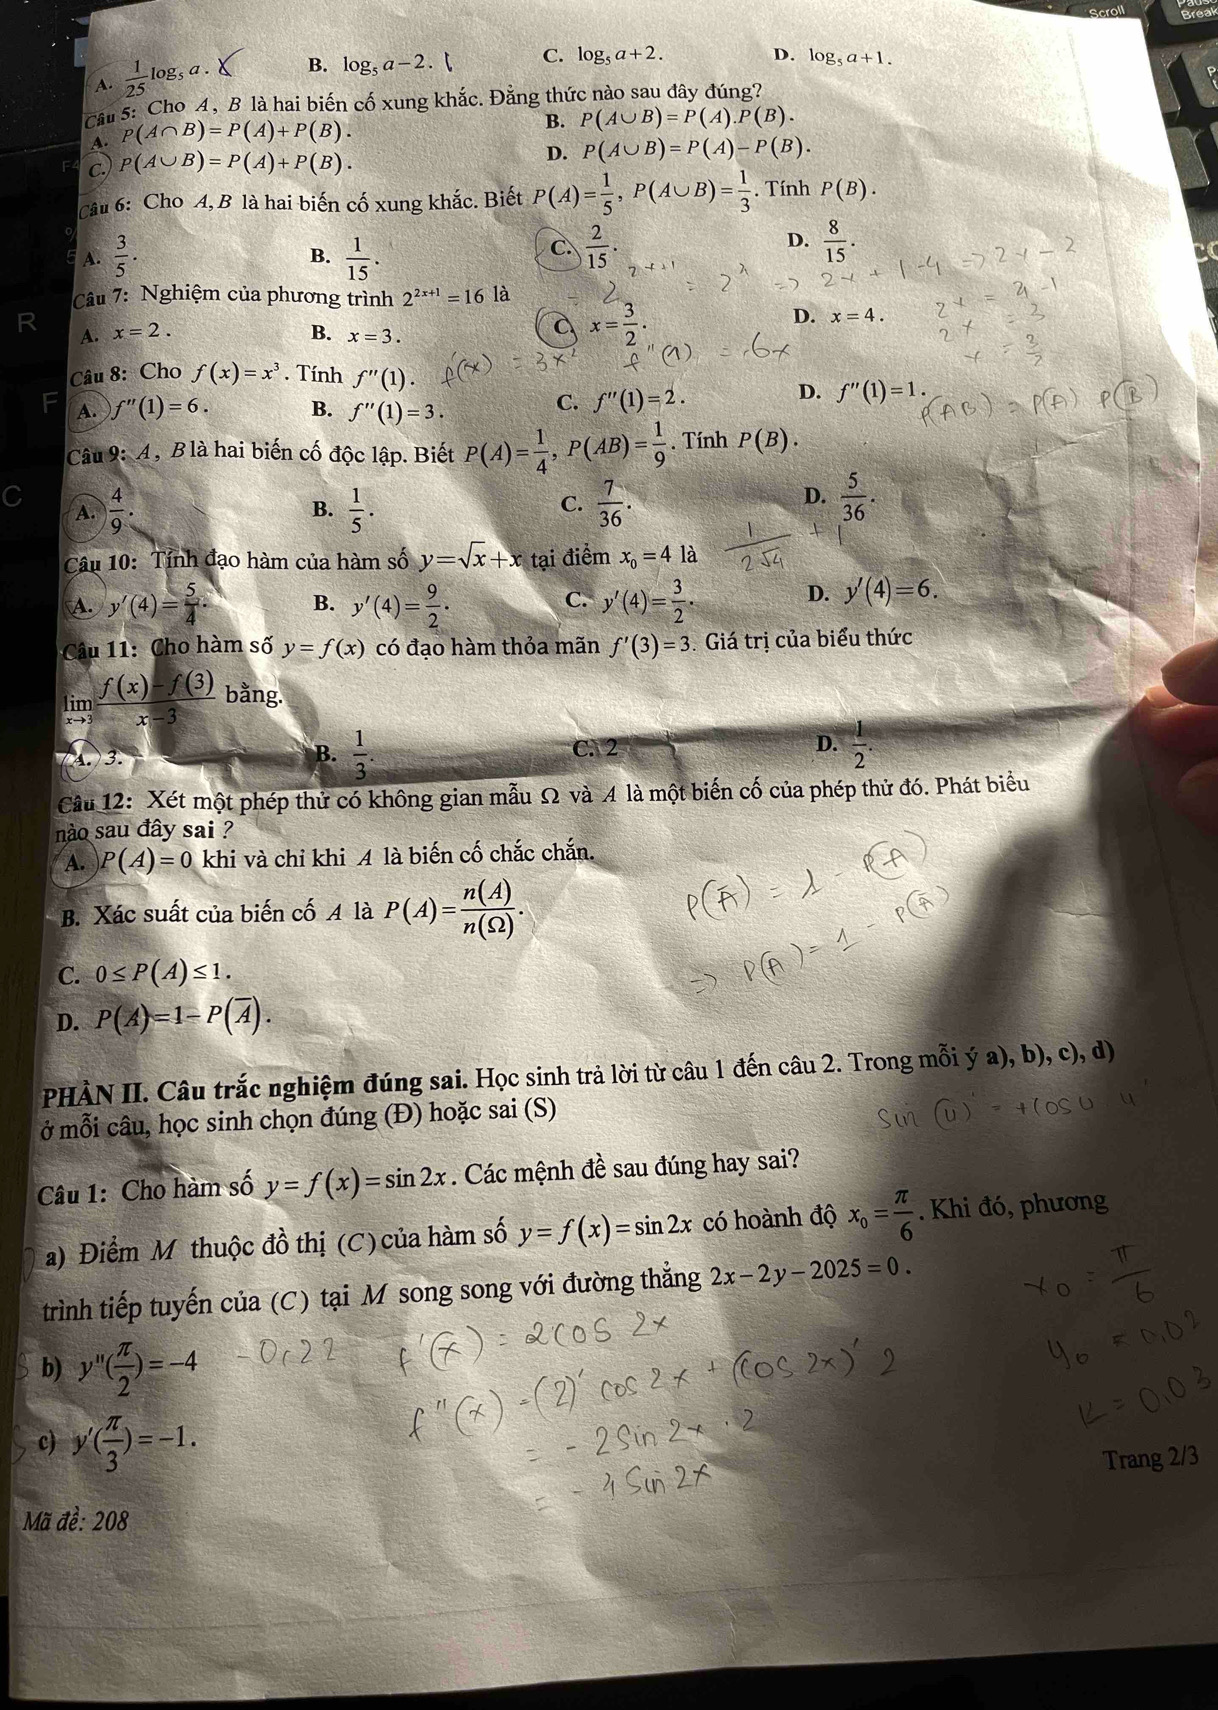 Scroll
Break
A. 1/25 log₅ a. X B. log₅ a − 2. C. log₅ a + 2. D. log₅ a + 1.
Câu 5: Cho A, B là hai biến cố xung khắc. Đẳng thức nào sau đây đúng?
A. P(A∩B)=P(A)+P(B). B. P(A∪B)=P(A).P(B).
C. P(A∪B)=P(A)+P(B). D. P(A∪B)=P(A)−P(B).
Câu 6: Cho A, B là hai biến cố xung khắc. Biết P(A)=1/5, P(A∪B)=1/3. Tính P(B).
A. 3/5. B. 1/15. C. 2/15. D. 8/15.
Câu 7: Nghiệm của phương trình 2^(2x+1)=16 là
A. x=2. B. x=3. C. x=3/2. D. x=4.
Câu 8: Cho f(x)=x³. Tính f''(1). f'(x) = 3x² f''(1) = 6x
A. f''(1)=6. B. f''(1)=3. C. f''(1)=2. D. f''(1)=1.
P(AB) = P(A) P(B)
Câu 9: A, B là hai biến cố độc lập. Biết P(A)=1/4, P(AB)=1/9. Tính P(B).
A. 4/9. B. 1/5. C. 7/36. D. 5/36.
Câu 10: Tính đạo hàm của hàm số y=√x+x tại điểm x₀=4 là 1/(2√4) + 1
A. y'(4)=5/4. B. y'(4)=9/2. C. y'(4)=3/2. D. y'(4)=6.
Câu 11: Cho hàm số y=f(x) có đạo hàm thỏa mãn f'(3)=3. Giá trị của biểu thức
lim x→3 (f(x)−f(3))/(x−3) bằng.
A. 3. B. 1/3. C. 2 D. 1/2.
Câu 12: Xét một phép thử có không gian mẫu Ω và A là một biến cố của phép thử đó. Phát biểu
nào sau đây sai ?
A. P(A)=0 khi và chỉ khi A là biến cố chắc chắn.
P(A̅) = 1 - P(A)
B. Xác suất của biến cố A là P(A)=n(A)/n(Ω).
=> P(A) = 1 - P(A̅)
C. 0≤P(A)≤1.
D. P(A)=1−P(A̅).
PHẦN II. Câu trắc nghiệm đúng sai. Học sinh trả lời từ câu 1 đến câu 2. Trong mỗi ý a), b), c), d)
ở mỗi câu, học sinh chọn đúng (Đ) hoặc sai (S)
Sin (u)' = + cos u u'
Câu 1: Cho hàm số y=f(x)=sin2x. Các mệnh đề sau đúng hay sai?
a) Điểm M thuộc đồ thị (C) của hàm số y=f(x)=sin2x có hoành độ x₀=π/6. Khi đó, phương
trình tiếp tuyến của (C) tại M song song với đường thẳng 2x−2y−2025=0.
x₀ = π/6
b) y''(π/2)=−4 -0,22 f'(x) = 2cos 2x
y₀ = 0,02
f''(x) = (2)' cos 2x + (cos 2x)' 2
K = 0,03
c) y'(π/3)=−1. = - 2 Sin 2x . 2
= - 4 Sin 2x
Trang 2/3
Mã đề: 208